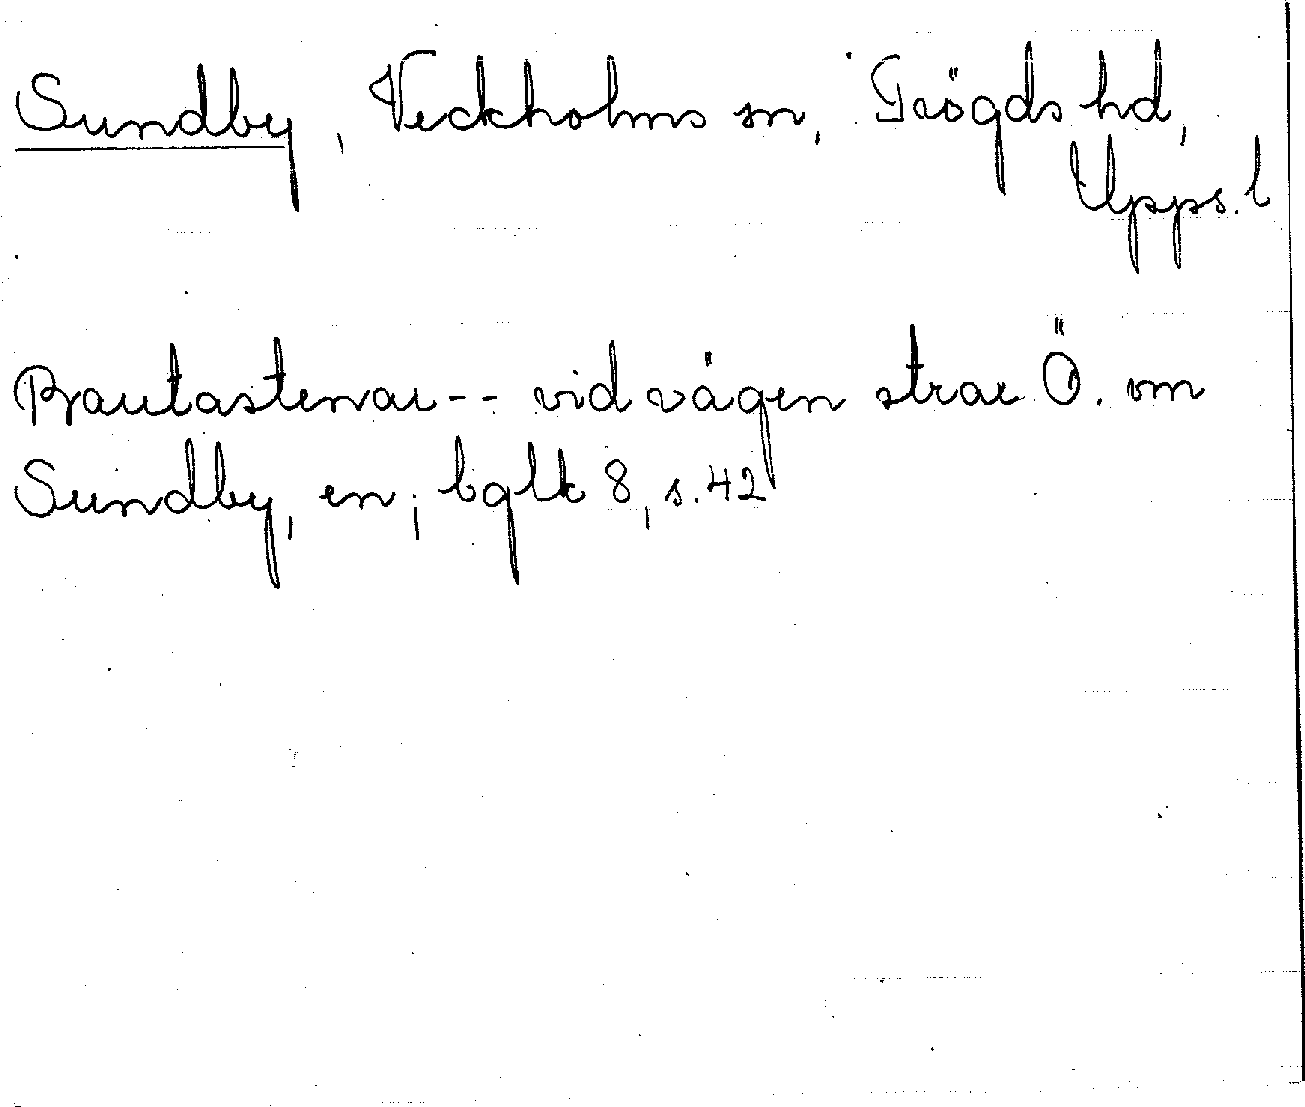 Sundby, Veckholms sn, Trögds hd,
Upps. l
Bautastenar -- vid vägen strax Ö. om
Sundby, en; bglk 8, s. 42